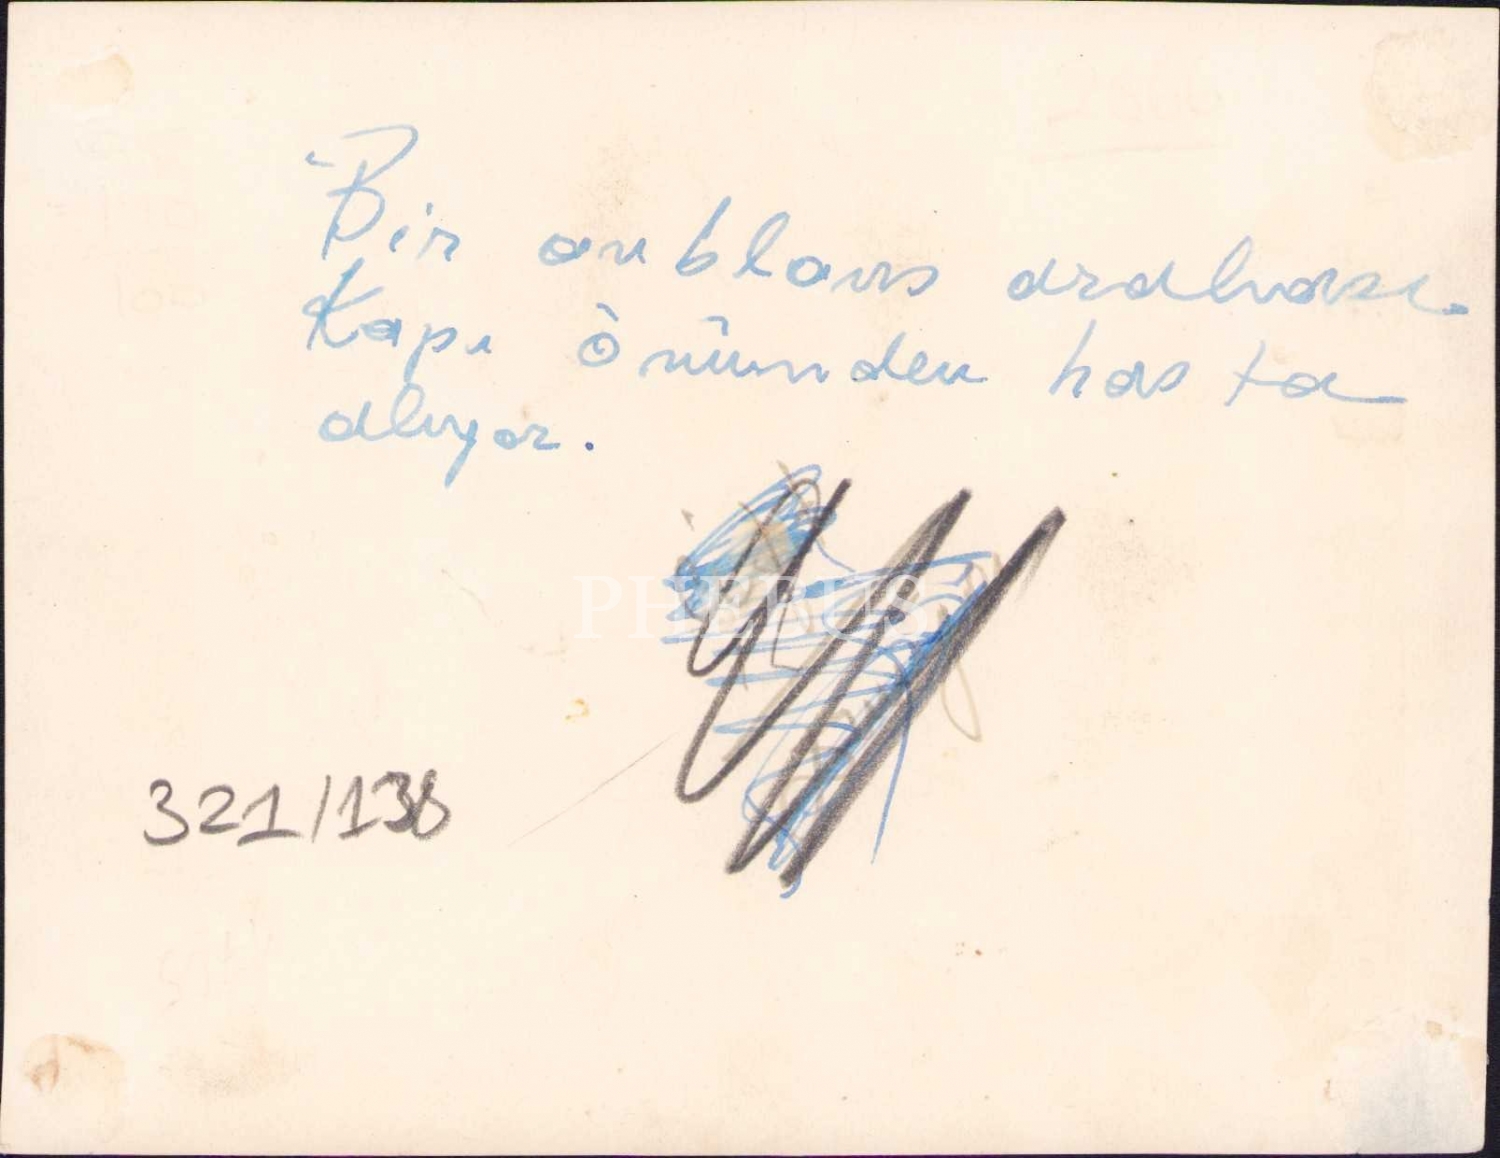 Bir anblans arabası
Kapı önünden hasta
alıyor.
PHEBUS
321/138